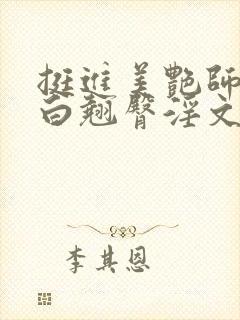 挺进美艳师
白翘臀淫文
李其恩